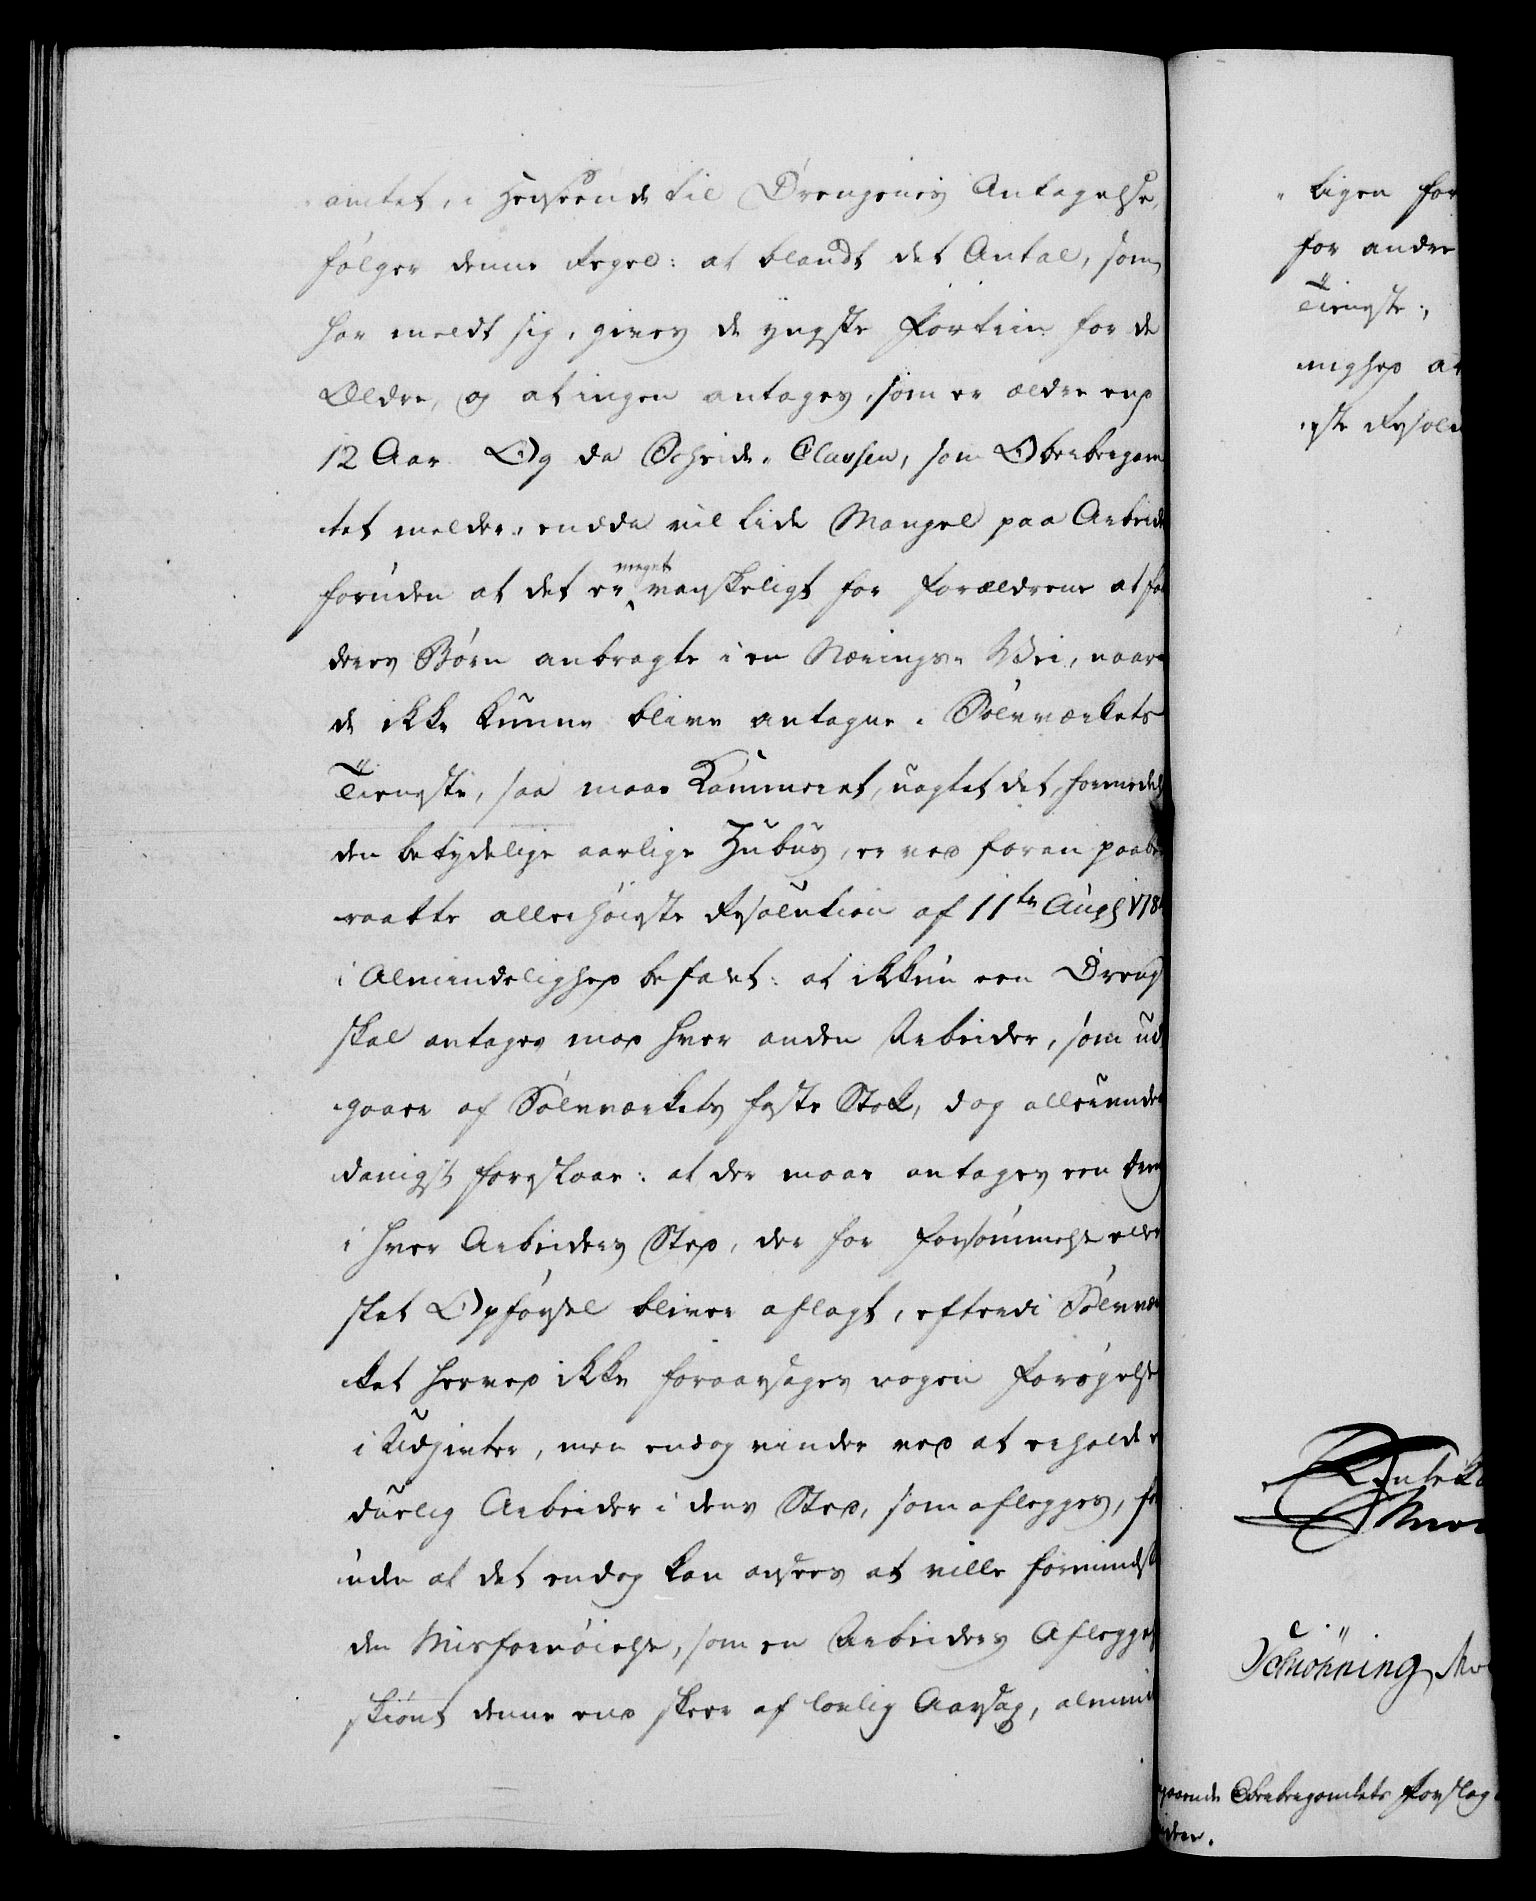 amtet, i Henseende til Drengenes Antagelse,
følger denne Regel: at blandt det Antal, som
har meldt sig, gives de yngste Fortrin for de
Ældre, og at ingen antages, som er ældre end
12 Aar. Og da Scheide-Classen, som Oberbergam-
tet melder, endda vil lide Mangel paa Arbeide
foruden at det er meget vanskeligt for Forældrene at faa
deres Børn anbragte i en Nærings-Vei, naar
de ikke kunne blive antagne i Sølvværkets
Tieneste, saa maae Kammeret, uagtet det, formedelst
den betydelige aarlige Zubus, er ved foran paabe-
raabte allerhøieste Resolution af 11te Aug 178
i Almindelighed befalet: at ikkun een Dreng
skal antages mod hver anden Arbeider, som ud-
gaaer af Sølvværkets faste Stok, dog allerunder-
danigst foreslaae: at der maae antages een Dreng
i hver Arbeiders Sted, der for Forsømmelse eller
slet Opførsel bliver aflagt, efterdi Sølvvær-
ket herved ikke foraarsages nogen Forøgelse
i Udgivter, men endog vinder ved at erholde en
duelig Arbeider i dens Sted, som aflegges, for-
uden at det endog kan ansees at ville formindske
den Misfornøielse, som en Arbeiders Aflæggelse
skiønt denne end skeer af lovlig Aarsag, almin-
ligen for
for andre
Tieneste,
nighed at
gste Resolu
Schiønning
gaaende Oberbergamtets Forslag
ider.